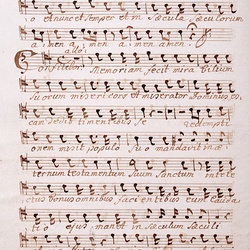 o Et nunc et semper et in sæcula sæculorum
a men a men a men amen.
allo:
Confitebor Memoriam fecit mirabilium
Suorum misericors et miserator Dominus es
cam dedit timentibus se redempti
onem misit populo Suo mandavit in æ
ternum testamentum Suum Sanctum intelle
ctus bonus omnibus facientibus eum Laudati
o ejus manet in sæculum sæculi